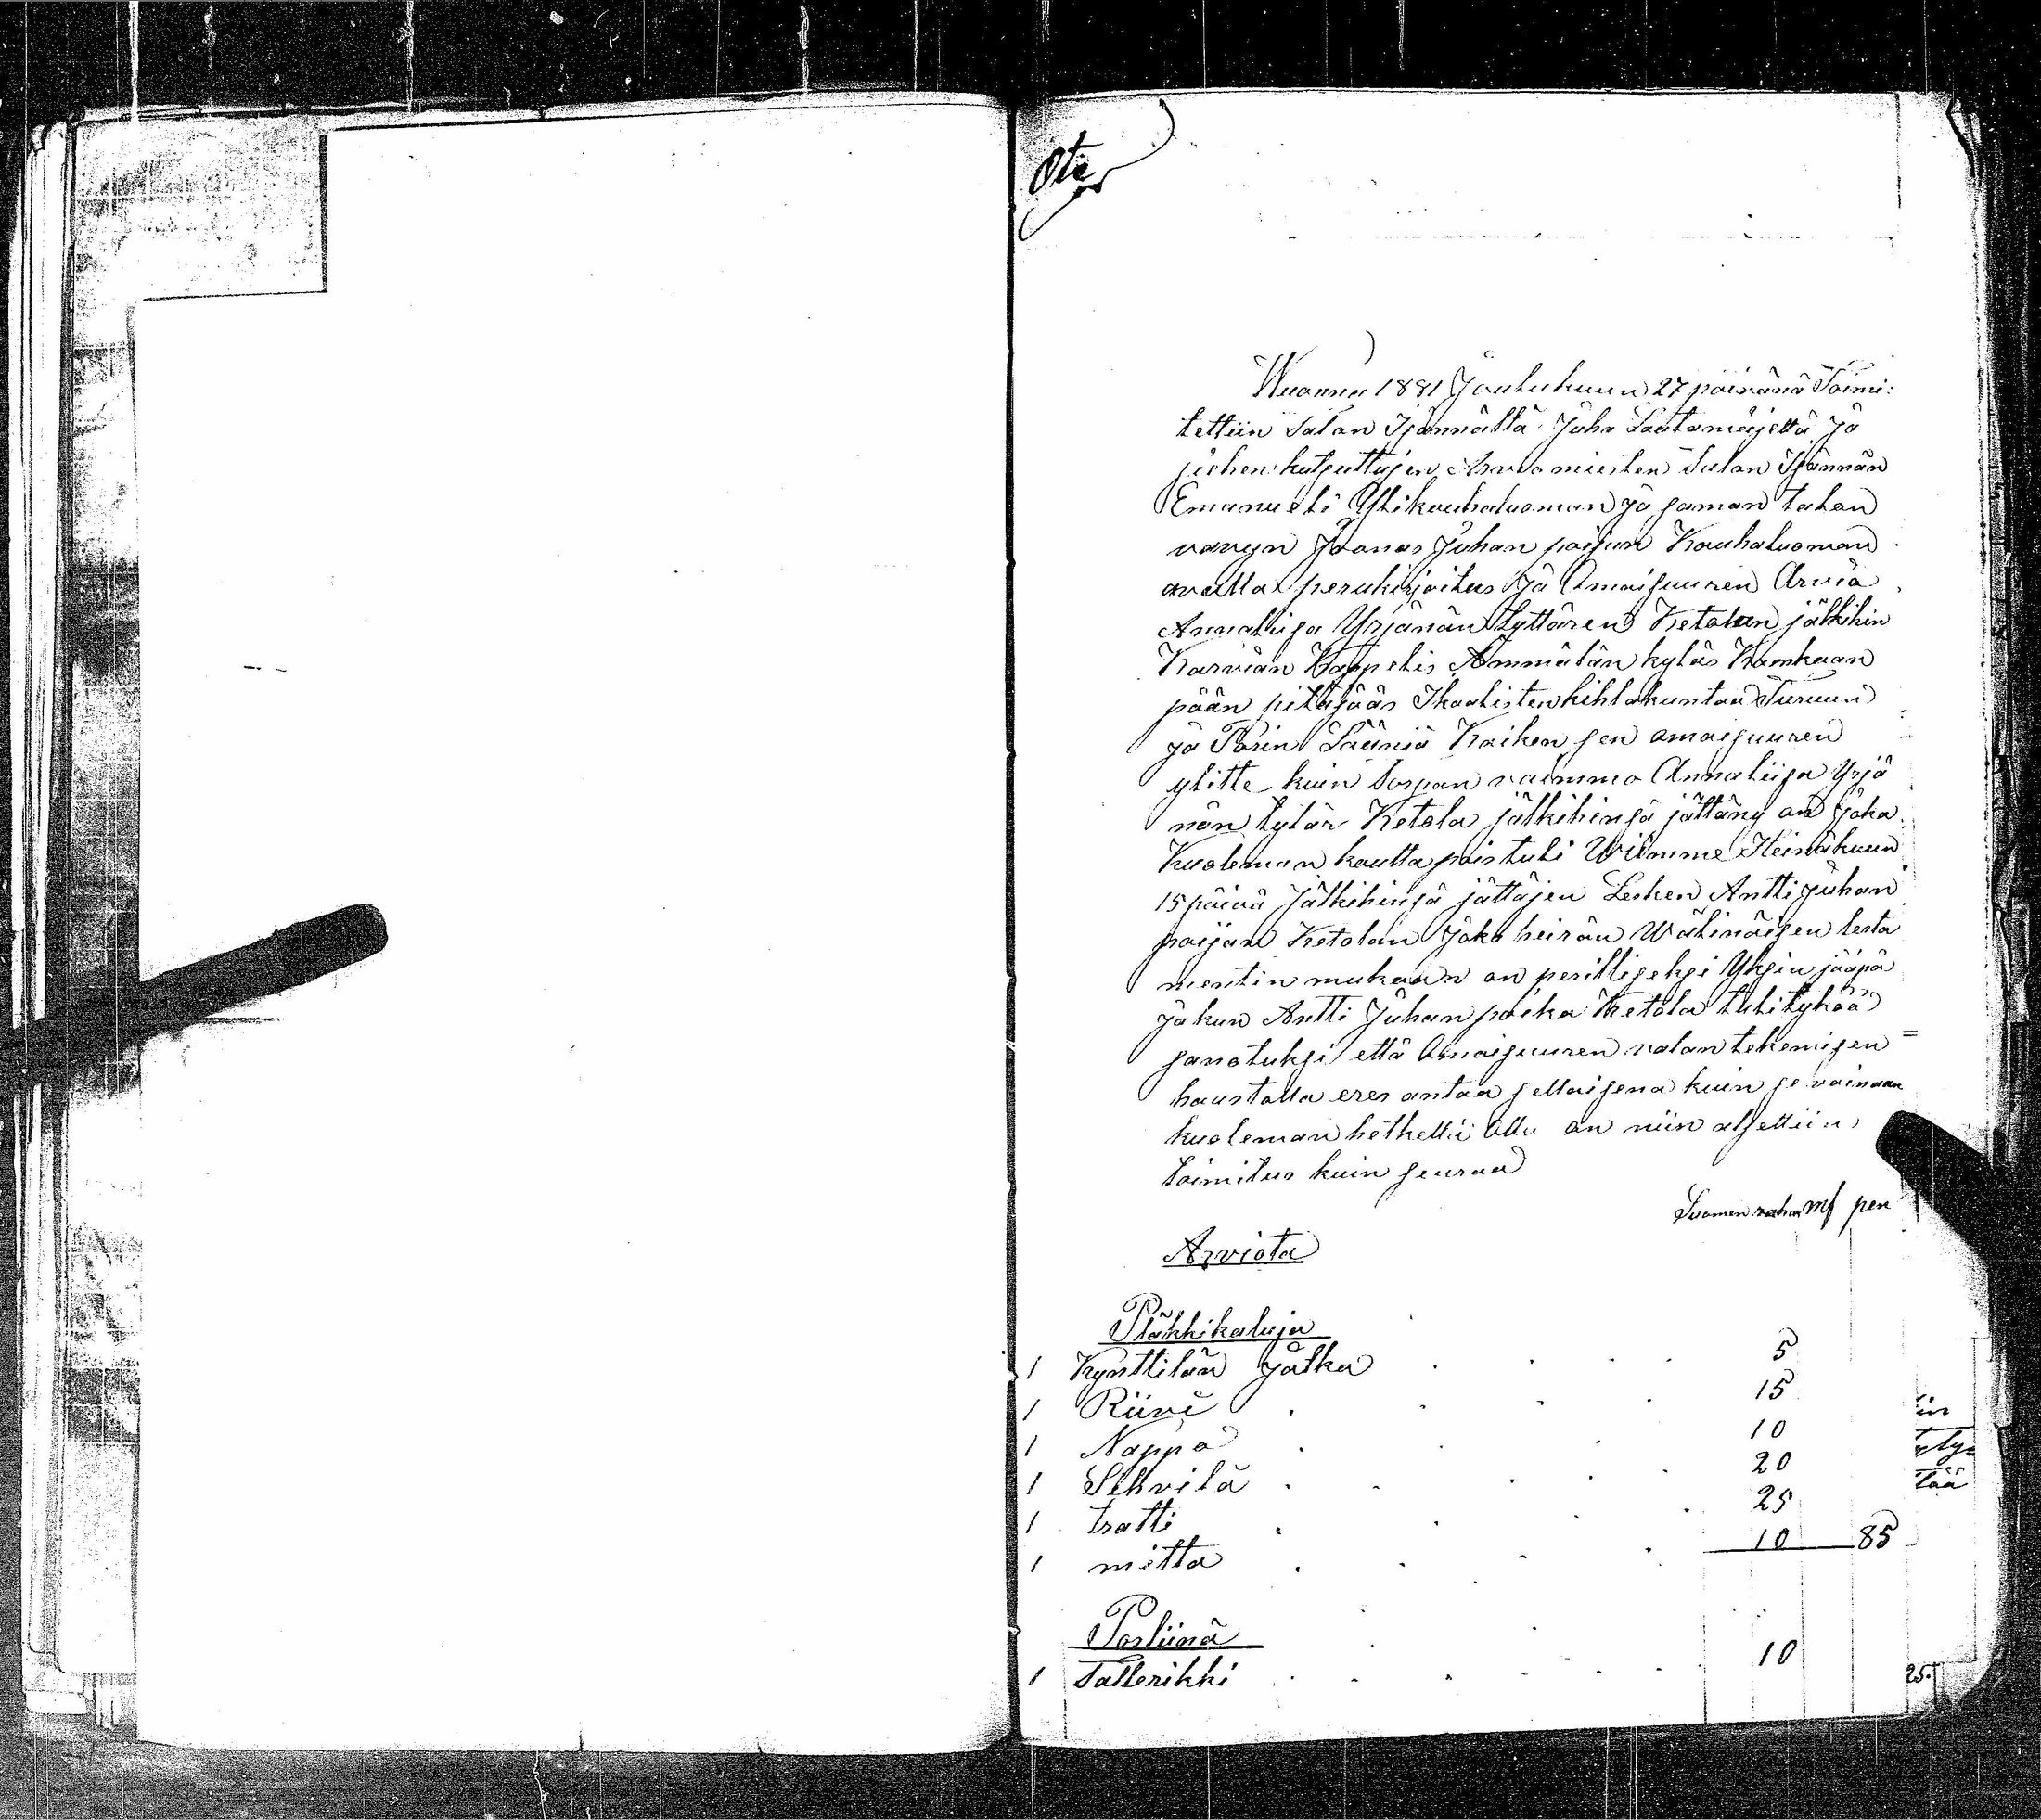 Ote
Wuonna 1881 Joulukuun 27 päivänä Toimi:
tettiin Talon Isännältä Juha Saatamäjeltä ja
jiehen kutsuttujen Arvio miesten Talon Isännän
Emanueli Ylikauhaluoman ja saman talon
vavyn Joonas Juhan pojan Kauhaluoman
avulla perukirjoitus ja Omaisuuren Arvio
Annaliisa Yrjänän tyttären Ketolan jälkihin
Karvian Kappelis Ämmälän kyläs Kankaan
pään pitäjääs Ikaalisten kihlakuntaa Turuun
ja Porin Lääniä Kaiken sen omaisuuren
ylitte kuin Torpan vaimmo Annaliisa Yrjä
nän tytär Ketola jälkihinsä jättäny on joka
Kuoleman kautta poistuli Wiimme Heinäkuun
15 päivä Jälkihinsä jättäjen Lesken Antti Juhan
poijan Ketolan Joko heirän Wälinäisen testa
mentin mukaan on perilliseksi Yksin jääpä
ja kun Antti Juhan poika Ketola tuli tykää
sanotuksi että Omaisuuren valan tekemisen =
haastolla eres antaa sellaisena kuin se vainaan
kuoleman hetkellä ollu on niin aljettiin
toimitus kuin seuraa
Suomen rahas mk pen
Arviota
Pläkkikaluja
1 Kynttilän jalka 5
1 Riive 15
1 Nappo 10
1 Sihvilä 20
1 tratti 25
1 mitta 10 85
Posliinä
1 Tallerikki 10
25.